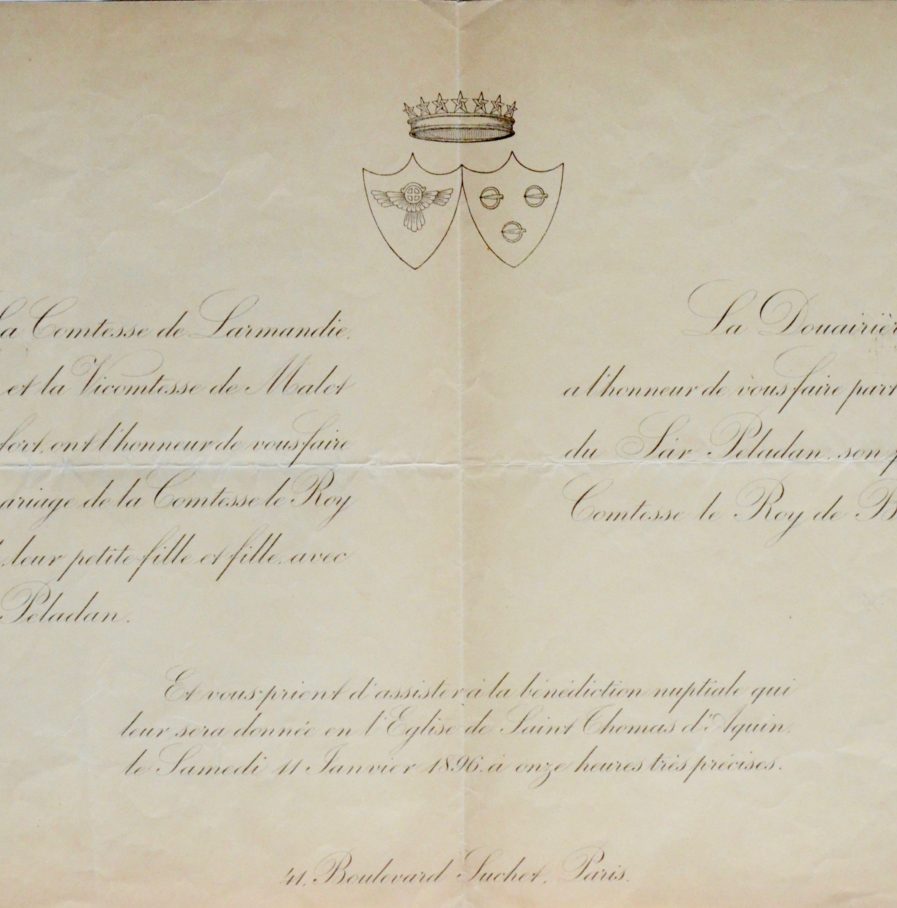 La Comtesse de Larmandie,
et la Vicomtesse de Malet
fort, ont l'honneur de vous faire
ariage de la Comtesse le Roy
leur petite fille et fille, avec
Péladan.
La Douairièr
a l'honneur de vous faire part
du Sâr Péladan, son p
Comtesse le Roy de B
Et vous prient d'assister à la bénédiction nuptiale qui
leur sera donnée en l'Eglise de Saint Thomas d'Aquin,
le Samedi 11 Janvier 1896, à onze heures très précises.
41, Boulevard Suchet, Paris.